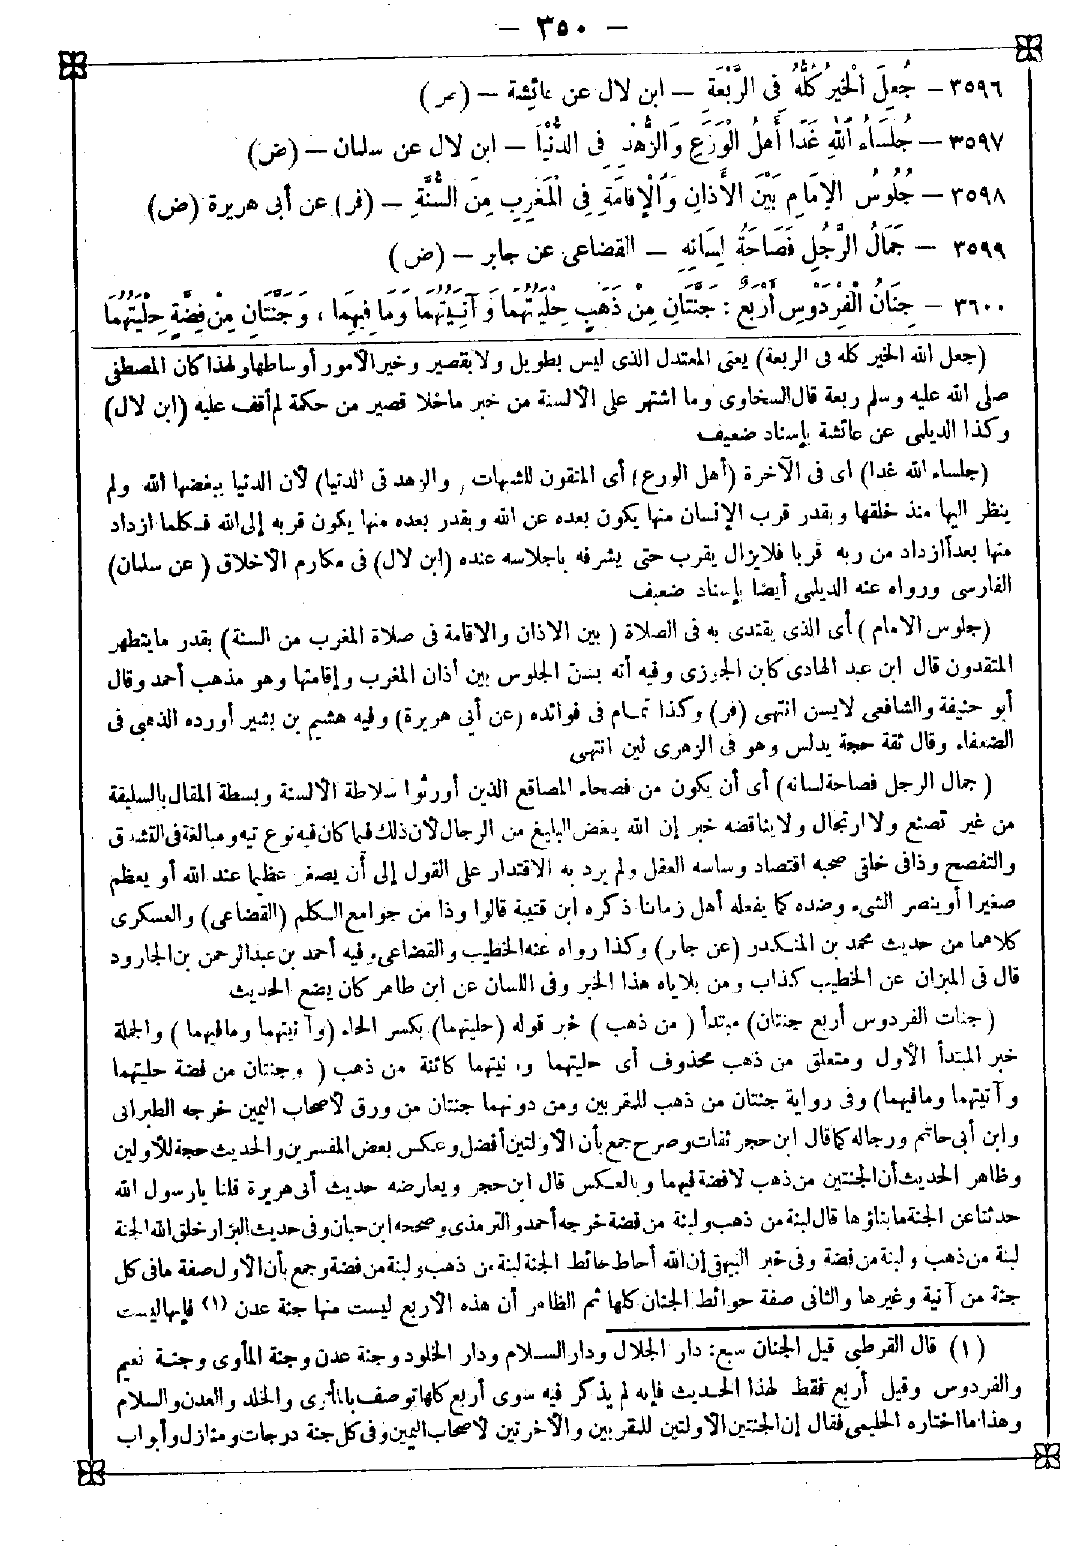 — ٣٥٠ —
٣٥٩٦ – جُعِلَ الْخَيْرُ كُلُّهُ فِى الرَّبْعَةِ – ابن لال عن عائشة – (صح)
٣٥٩٧ – جُلَسَاءُ اللهِ غَدًا أَهْلُ الْوَرَعِ وَالزُّهْدِ فِى الدُّنْيَا – ابن لال عن سلمان – (ض)
٣٥٩٨ – جُلُوسُ الإِمَامِ بَيْنَ الأَذَانِ وَالْإِقَامَةِ فِى الْمَغْرِبِ مِنَ السُّنَّةِ – (فر) عن أبى هريرة (ض)
٣٥٩٩ – جَمَالُ الرَّجُلِ فَصَاحَةُ لِسَانِهِ – القضاعى عن جابر – (ض)
٣٦٠٠ – جِنَانُ الْفِرْدَوْسِ أَرْبَعٌ : جَنَّتَانِ مِنْ ذَهَبٍ حِلْيَتُهُمَا وَ آنِيَتُهُمَا وَمَا فِيهِمَا ، وَجَنَّتَانِ مِنْ فِضَّةٍ حِلْيَتُهُمَا
(جعل الله الخير كله فى الربعة) يعنى المعتدل الذى ليس بطويل ولا بقصير وخير الأمور أوساطها ولهذا كان المصطفى
صلى الله عليه وسلم ربعة قال السخاوى وما اشتهر على الألسنة من خبر ما خلا قصير من حكمة لم أقف عليه (ابن لال)
وكذا الديلمى عن عائشة بإسناد ضعيف
(جلساء الله غدا) اى فى الآخرة (أهل الورع) أى المتقون للشبهات (والزهد فى الدنيا) لأن الدنيا يبغضها الله ولم
ينظر اليها منذ خلقها وبقدر قرب الإنسان منها يكون بعده عن الله وبقدر بعده منها يكون قربه إلى الله فكلما ازداد
منها بعداً ازداد من ربه قربا فلا يزال يقرب حتى يشرفه باجلاسه عنده (ابن لال) فى مكارم الأخلاق (عن سلمان)
الفارسى ورواه عنه الديلمى أيضا بإسناد ضعيف
(جلوس الامام) أى الذى يقتدى به فى الصلاة (بين الاذان والاقامة فى صلاة المغرب من السنة) بقدر ما يتطهر
المقتدون قال ابن عبد الهادى كابن الجوزى وفيه أنه يسن الجلوس بين أذان المغرب وإقامتها وهو مذهب أحمد وقال
أبو حنيفة والشافعى لايسن انتهى (فر) وكذا تمام فى فوائده (عن أبى هريرة) وفيه هشيم بن بشير أورده الذهبى فى
الضعفاء وقال ثقة حجة يدلس وهو فى الزهرى لين انتهى
(جمال الرجل فصاحة لسانه) أى أن يكون من فصحاء المصاقع الذين أورثوا سلاطة الألسنة وبسطة المقال بالسليقة
من غير تصنع ولا ارتجال ولا يناقضه خبر إن الله يبغض البليغ من الرجال لأن ذلك فيما كان فيه نوع تيه ومبالغة فى التشدق
والتفصح وذا فى خلق صحبه اقتصاد وساسه العقل ولم يرد به الاقتدار على القول إلى أن يصغر عظيما عند الله أو يعظم
صغيرا أو ينصر الشىء وضده كما يفعله أهل زماننا ذكره ابن قتيبة قالوا وذا من جوامع الكلم (القضاعى) والعسكرى
كلاهما من حديث محمد بن المنكدر (عن جابر) وكذا رواه عنه الخطيب والقضاعى وفيه أحمد بن عبدالرحمن بن الجارود
قال فى الميزان عن الخطيب كذاب ومن بلاياه هذا الخبر وفى اللسان عن ابن طاهر كان يضع الحديث
(جنات الفردوس أربع جنتان) مبتدأ (من ذهب) خبر قوله (حليتهما) بكسر الحاء (وآنيتهما وما فيهما) والجملة
خبر المبتدأ الأول ومتعلق من ذهب محذوف أى حليتهما وآنيتهما كائنة من ذهب (وجنتان من فضة حليتهما
وآنيتهما وما فيهما) وفى رواية جنتان من ذهب للمقربين ومن دونهما جنتان من ورق لأصحاب اليمين خرجه الطبرانى
وابن أبى حاتم ورجاله كما قال ابن حجر ثقات وصرح جمع بأن الأولتين أفضل وعكس بعض المفسرين والحديث حجة للأولين
وظاهر الحديث أن الجنتين من ذهب لافضة فيهما وبالعكس قال ابن حجر ويعارضه حديث أبى هريرة قلنا يا رسول الله
حدثنا عن الجنة ما بناؤها قال لبنة من ذهب ولبنة من فضة خرجه أحمد والترمذى وصححه ابن حبان وفى حديث البزار خلق الله الجنة
لبنة من ذهب ولبنة من فضة وفى خبر البيهقى إن الله أحاط حائط الجنة لبنة من ذهب ولبنة من فضة وجمع بأن الأول صفة ما فى كل
جنة من آنية وغيرها والثانى صفة حوائط الجنان كلها ثم الظاهر أن هذه الأربع ليست منها جنة عدن (١) فإنها ليست
(١) قال القرطبى قيل الجنان سبع: دار الجلال ودار السلام ودار الخلود وجنة عدن وجنة المأوى وجنة نعيم
والفردوس وقيل أربع فقط لهذا الحديث فإنه لم يذكر فيه سوى أربع كلها توصف بالمأوى والخلد والعدن والسلام
وهذا ما اختاره الحليمى فقال إن الجنتين الأولتين للمقربين والآخرتين لأصحاب اليمين وفى كل جنة درجات ومنازل وأبواب